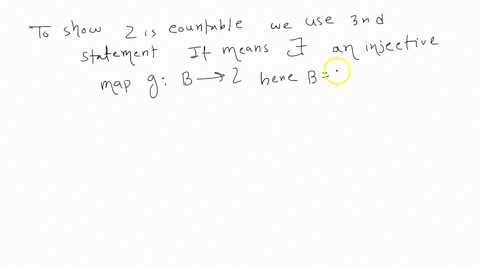 To show Z is countable we use 3nd
statement It means ∃ an injective
map g: B → Z here B =